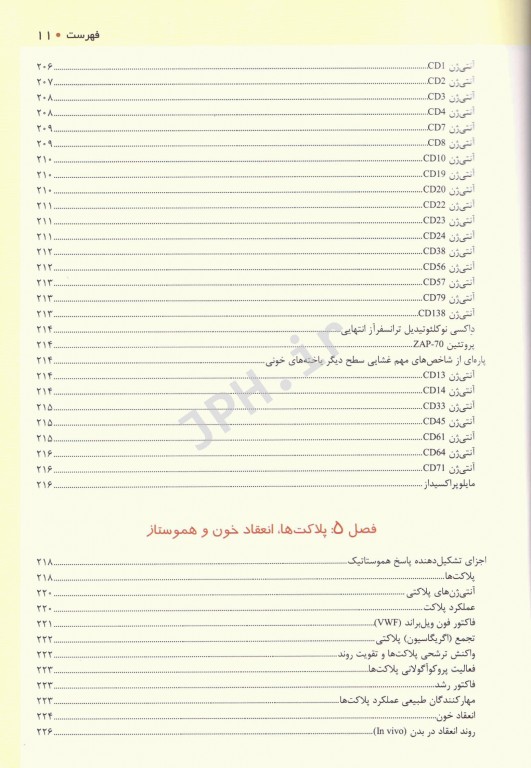 فهرست • ۱۱
آنتی‌ژن CD1 ۲۰۶
آنتی‌ژن CD2 ۲۰۷
آنتی‌ژن CD3 ۲۰۸
آنتی‌ژن CD4 ۲۰۸
آنتی‌ژن CD7 ۲۰۹
آنتی‌ژن CD8 ۲۰۹
آنتی‌ژن CD10 ۲۱۰
آنتی‌ژن CD19 ۲۱۰
آنتی‌ژن CD20 ۲۱۰
آنتی‌ژن CD22 ۲۱۱
آنتی‌ژن CD23 ۲۱۱
آنتی‌ژن CD24 ۲۱۱
آنتی‌ژن CD38 ۲۱۲
آنتی‌ژن CD56 ۲۱۲
آنتی‌ژن CD57 ۲۱۳
آنتی‌ژن CD79 ۲۱۳
آنتی‌ژن CD138 ۲۱۳
داکسی نوکلئوتیدیل ترانسفرآز انتهایی ۲۱۴
پروتئین ZAP-70 ۲۱۴
پاره‌ای از شاخص‌های مهم غشایی سطح دیگر یاخته‌های خونی ۲۱۴
آنتی‌ژن CD13 ۲۱۴
آنتی‌ژن CD14 ۲۱۴
آنتی‌ژن CD33 ۲۱۵
آنتی‌ژن CD45 ۲۱۵
آنتی‌ژن CD61 ۲۱۵
آنتی‌ژن CD64 ۲۱۶
آنتی‌ژن CD71 ۲۱۶
مایلوپراکسیداز ۲۱۶
JPH.ir
فصل ۵: پلاکت‌ها، انعقاد خون و هموستاز
اجزای تشکیل‌دهنده پاسخ هموستاتیک ۲۱۸
پلاکت‌ها ۲۱۸
آنتی‌ژن‌های پلاکتی ۲۲۰
عملکرد پلاکت ۲۲۰
فاکتور فون ویل‌براند (VWF) ۲۲۱
تجمع (اگریگاسیون) پلاکتی ۲۲۲
واکنش ترشحی پلاکت‌ها و تقویت روند ۲۲۲
فعالیت پروکوآگولانی پلاکت‌ها ۲۲۳
فاکتور رشد ۲۲۳
مهارکنندگان طبیعی عملکرد پلاکت‌ها ۲۲۳
انعقاد خون ۲۲۴
روند انعقاد در بدن (In vivo) ۲۲۶